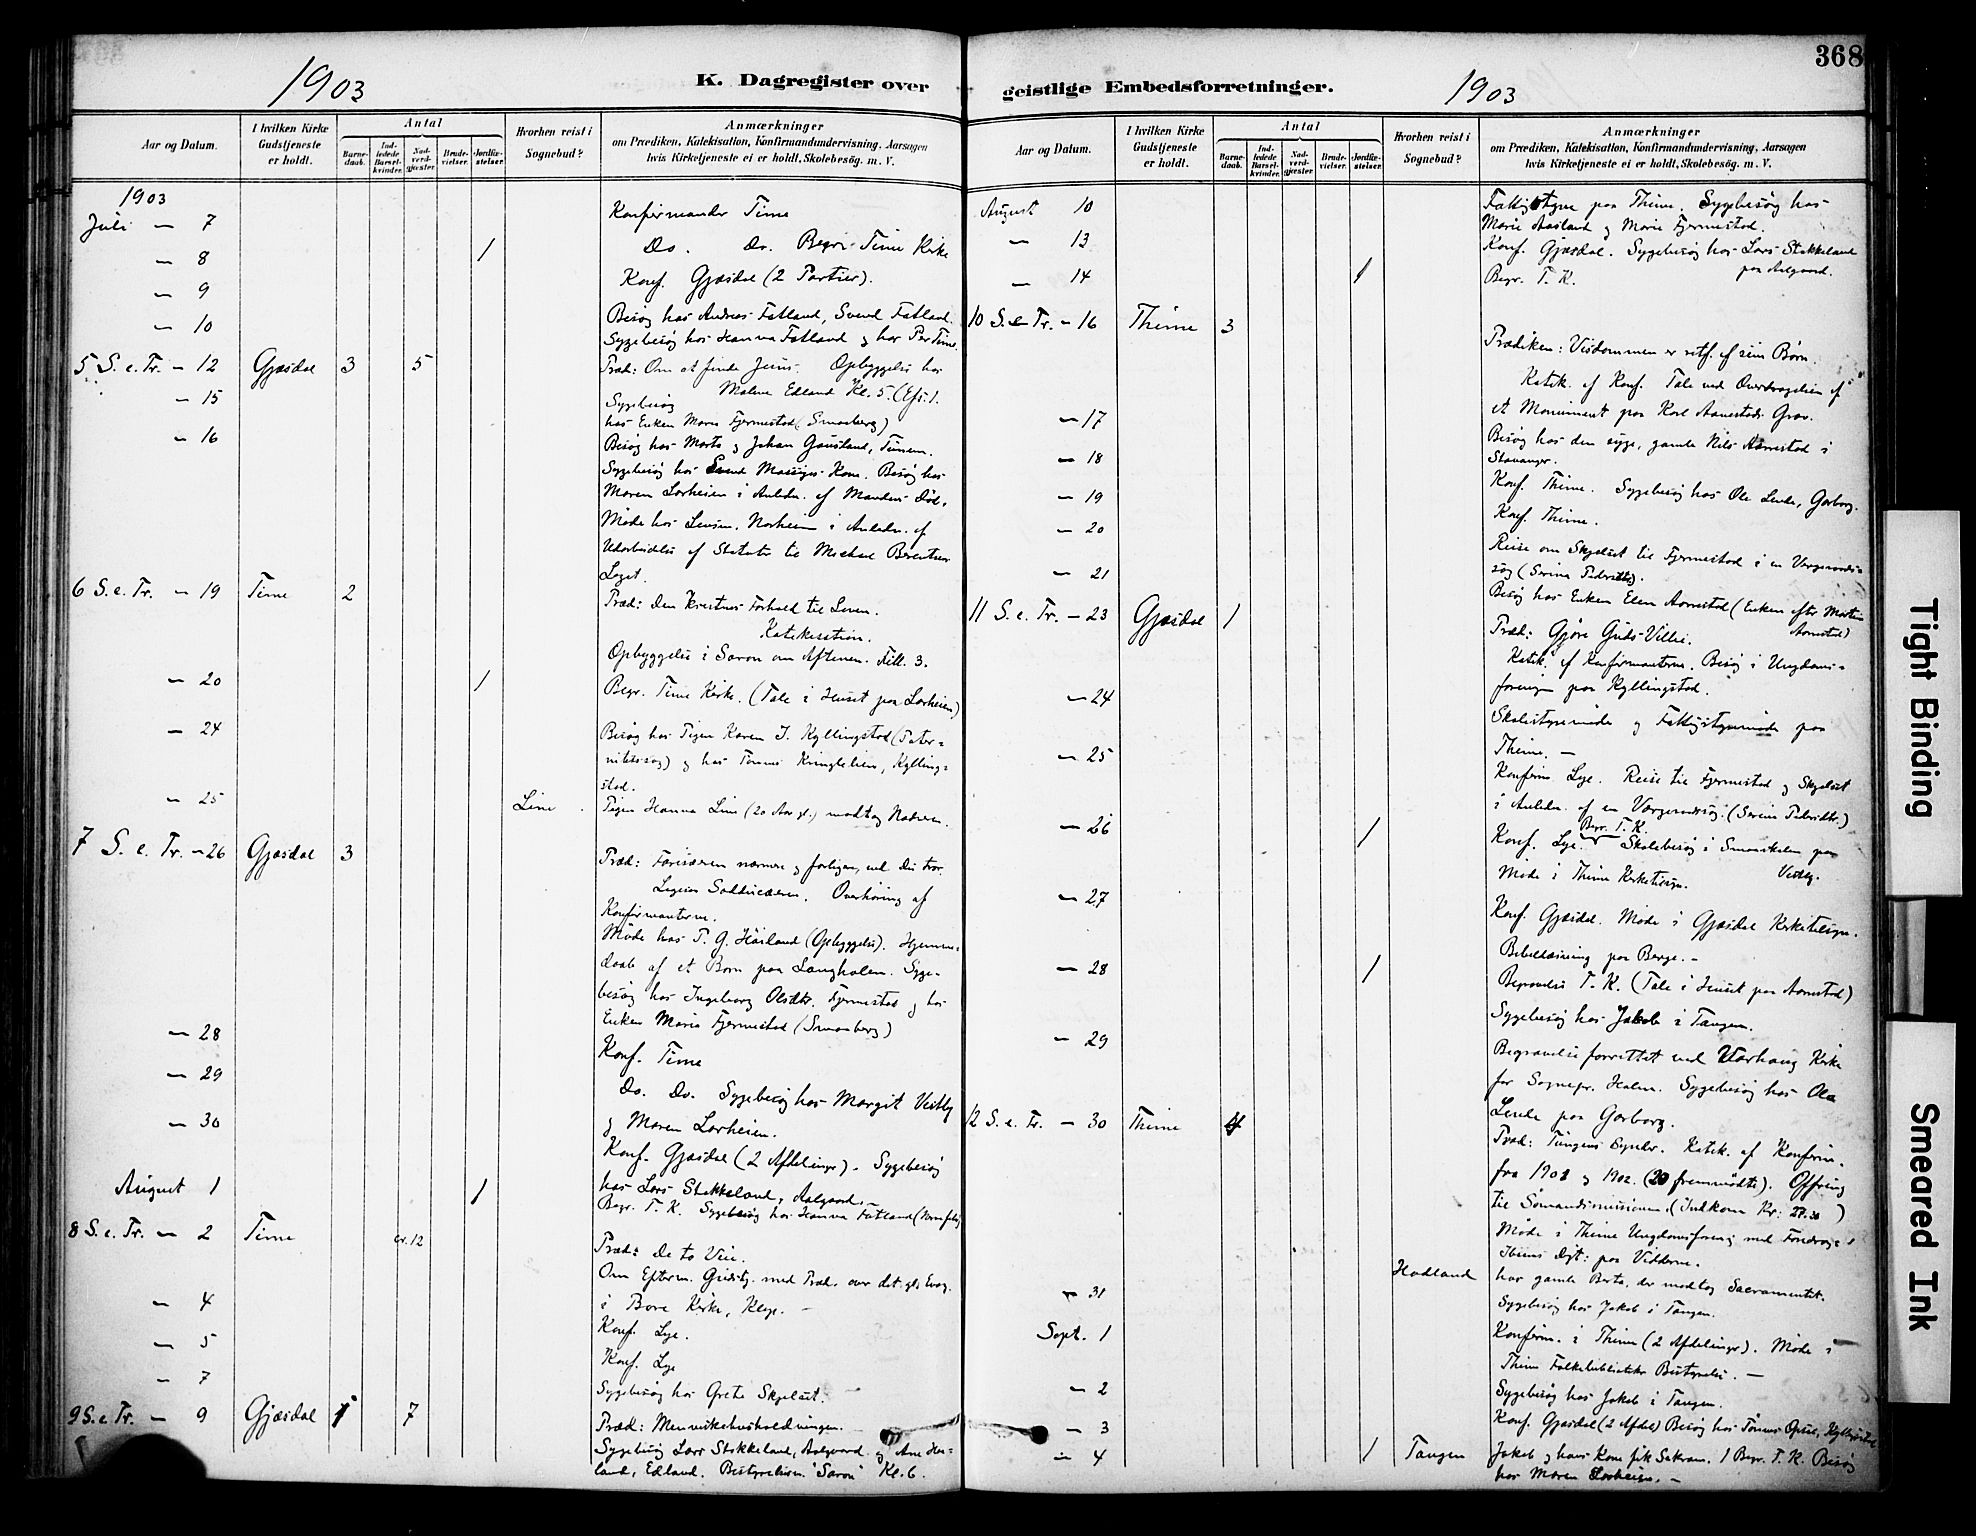 368
1903
K. Dagregister over
geistlige Embedsforretninger.
1903
Aar og Datum.
I hvilken Kirke Gudstjeneste er holdt.
Antal
Barne-daab.
Ind-ledede Barsel-kvinder.
Nad-verd-gjæster.
Brude-vielser.
Jordfæ-stelser.
Hvorhen reist i Sognebud?
Anmærkninger
om Prædiken, Katekisation, Konfirmandundervisning. Aarsagen
hvis Kirketjeneste ei er holdt, Skolebesøg. m. V.
1903
Juli — 7 Konfirmander Time
— 8 / Do. Do. Begr. Time Kirke
— 9 Konf. Gjæsdal (2 Partier).
— 10 Besøg hos Andreas Fatland, Svend Fatland.
Sygebesøg hos Hanna Fatland og hos Per Time.
5 S. e. Tr. — 12 Gjæsdal 3 5 Præd: Om at finde Jesus. Opbyggelse hos
Malene Edland Kl. 5. (Efs. 1.
— 15 Sygebesøg
hos Enken Maria Fjermestad (Smaaberg)
— 16 Besøg hos Marta og Johan Gausland, Tunem.
Sygebesøg hos Svend Mauriges Kone. Besøg hos
Maren Lorheien i Anledn. af Mandens Død.
Møde hos Lensm. Norheim i Anledn. af
Udarbeidelse af Statuter til Michael Berentsen
Legat.
6 S. e. Tr. — 19 Time 2 Præd: Den Kristnes Forhold til Loven.
Katekisation.
Opbyggelse i Saron om Aftenen. Fill. 3.
— 20 / Begr. Time Kirke. (Tale i Huset paa Lorheien)
— 24 Besøg hos Pigen Karen J. Kyllingstad (Pater-
nitetssag) og hos Tønnes Kringlelien, Kylling-
stad.
— 25 Line Pigen Hanna Line (20 Aar gl.) modtog Nadveren.
7 S. e. Tr. — 26 Gjæsdal 3
Præd: Farisæeren nærmere og farligere, end du tror.
Ligesom Sadducæeren. Overhøring af
Konfirmanterne.
Møde hos T. G. Haaland (Opbyggelse). Hjemme-
daab af et Barn paa Langholen. Syge-
besøg hos Ingeborg Olsdtr. Fjermestad og hos
Enken Maria Fjermestad (Smaaberg)
— 28 Konf. Time
— 29 Do. Do. Sygebesøg hos Margit Vestly
og Maren Lorheien.
— 30 Konf. Gjæsdal (2 Afdelinger). Sygebesøg
hos Lars Stokkeland, Aalgaard. —
August 1 / Begr. T. K. Sygebesøg hos Hanna Fatland
8 S. e. Tr. — 2 Time cr. 12 Præd: De to Veie.
Om Efterm. Gudstj. med Præd. over det gl. Evag.
i Bore Kirke, Klepp. —
— 4 Konf. Lye.
— 5 Konf. Lye
— 7 Sygebesøg hos Grete Skjelset.
9 S. e. Tr. — 9 Gjæsdal 1 7 Præd: Menneskehusholdningen.
Sygebesøg Lars Stokkeland, Aalgaard og Ane Hau-
land, Edland. Bestyrelsen "Saron" Kl. 6.
Aar og Datum.
I hvilken Kirke Gudstjeneste er holdt.
Antal
Barne-daab.
Ind-ledede Barsel-kvinder.
Nad-verd-gjæster.
Brude-vielser.
Jordfæ-stelser.
Hvorhen reist i Sognebud?
Anmærkninger
om Prædiken, Katekisation, Konfirmandundervisning, Aarsagen
hvis Kirketjeneste ei er holdt, Skolebesøg. m. V.
August 10 Fattigstyre paa Thime. Sygebesøg hos
Marie Aasland og Marie Fjermestad.
— 13 Konf. Gjæsdal. Sygebesøg hos Lars Stokkeland
paa Aalgaard.
— 14 / Begr. T. K.
10 S. e. Tr. — 16 Thime 3
Prædiken: Visdommen er retf. af sine Børn.
Katek. af Konf. Tale ved Overdragelsen af
et Monument paa Karl Aanestads Grav.
— 17 Besøg hos den syge, gamle Nils Aanestad i
Stavanger.
— 18 Konf. Thime. Sygebesøg hos Ole Lende, Garborg.
— 19 Konf. Thime.
— 20 Reise om Skjelset til Fjermestad i en Værgeraads-
sag (Serina Pedersdtr).
— 21 Besøg hos Enken Elen Aanestad (Enken efter Martin
Aanestad)
11 S. e. Tr. — 23 Gjæsdal 1 Præd: Gjøre Guds Villie.
Katek. af Konfirmanterne. Besøg i Ungdoms-
foreningen paa Kyllingstad.
— 24 Skolestyremøde og Fattigstyremøde paa
Thime. —
— 25 Konfirm. Lye. Reise til Fjermestad og Skjelset
i Anledn. af en Værgeraadssag. (Serina Pedersdtr.)
— 26 / Begr. T. K.
Konf. Lye. Skolebesøg i Smaaskolen paa
Møde i Thime Kirketilsyn. Vestly.
— 27 Konf. Gjæsdal. Møde i Gjæsdal Kirketilsyn.
Bibellæsning paa Berge. —
— 28 / Begravelse T. K. (Tale i Huset paa Aanestad)
Sygebesøg hos Jakob i Tangen.
— 29 Begravelse forrettet ved Varhaug Kirke
for Sognepr. Holm. Sygebesøg hos Ola
Lende paa Garborg.
12 S. e. Tr. — 30 Thime 4 Præd: Tungens Synder. Katek. af Konfirm.
fra 1901 og 1902. (20 fremmødte). Offring
til Sømandsmissionen. (Indkom Kr: 27.30 )
Møde i Thime Ungdomsforening med Foredrag:
Ibsens Digt: paa Vidderne.
Hadland hos gamle Berta, der modtog Sacramentet.
— 31 Sygebesøg hos Jakob i Tangen.
Sept. 1 Konfirm. i Thime (2 Afdelinger). Møde i
Thime Folkebibliotheks Bestyrelse. —
— 2 Sygebesøg hos Jakob i Tangen.
— 3 Konf. Gjæsdal (2 Afdel) Besøg hos Tønnes Opsal, Kyllingstad
— 4 / Tangen Jakob og hans Kone fik Sakram. / Begr. T. K. Besøg
hos Maren Lorheien. —
Tight Binding
Smeared Ink